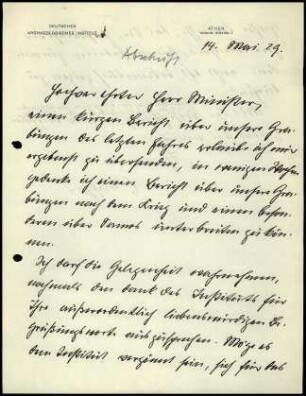 DEUTSCHES
ARCHAEOLOGISCHES INSTITUT
ATHEN
14. Mai. 29.
Abschrift
Hochverehrter Herr Minister,
einen kurzen Bericht über unsere Gra-
bungen des letzten Jahres erlaube ich mir
ergebenst zu übersenden, in wenigen Wochen
gedenke ich einen Bericht über unsere Gra-
bungen nach dem Krieg und einen beson-
deren über Samos unterbreiten zu kön-
nen.
Ich darf die Gelegenheit wahrnehmen,
nochmals den Dank des Instituts für
Ihre außerordentlich liebenswürdigen Be-
grüßungsworte auszusprechen. Möge es
dem Institut vergönnt sein, sich für das